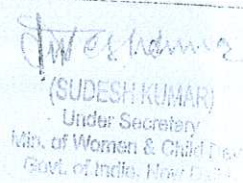 (SUDESH KUMAR)
Under Secretary
Min. of Women & Child Dev
Govt. of India, New Delhi